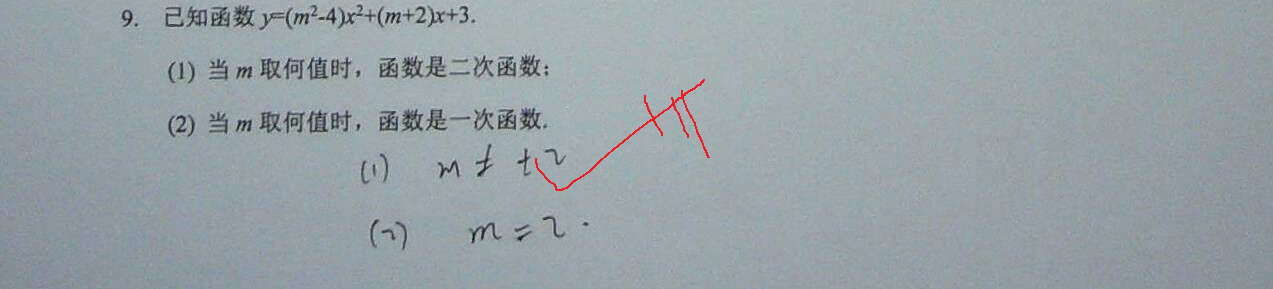 9. 已知函数 y=(m²-4)x²+(m+2)x+3.
(1) 当 m 取何值时，函数是二次函数；
(2) 当 m 取何值时，函数是一次函数.
(1) m ≠ ±2
(2) m = 2.